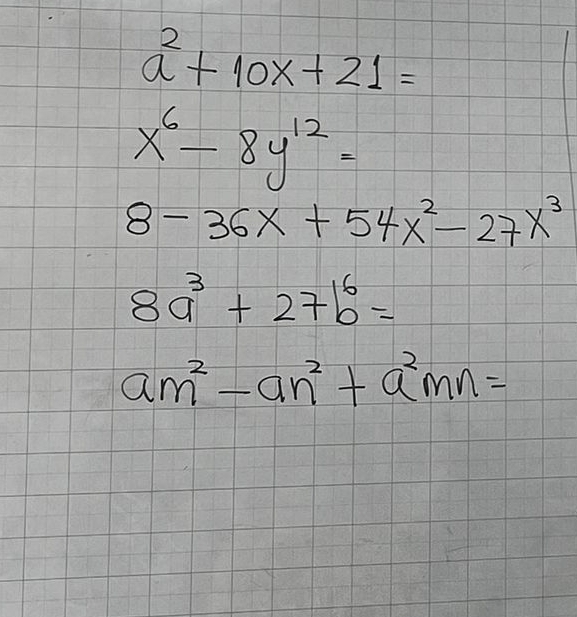 a² + 10x + 21 =
x⁶ - 8y¹² =
8 - 36x + 54x² - 27x³
8a³ + 27b⁶ =
am² - an² + a²mn =